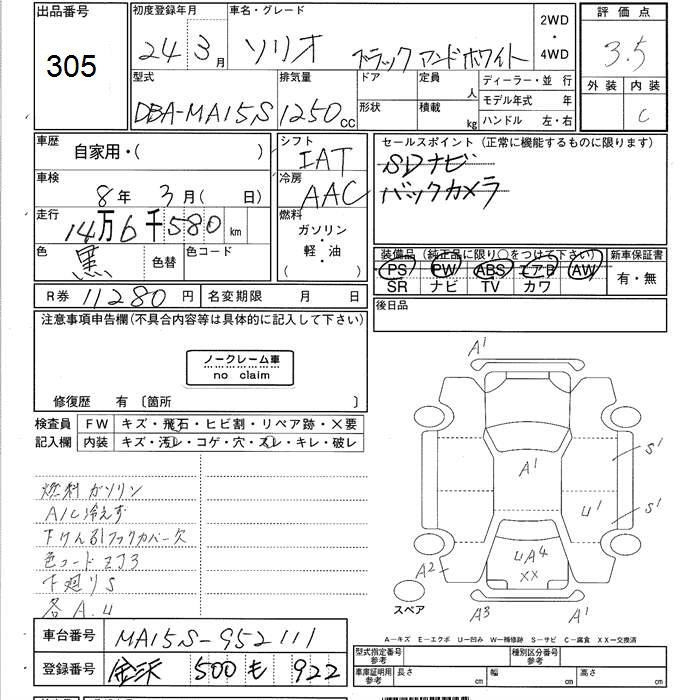 出品番号
305
初度登録年月
24年3月
車名・グレード
ソリオ ブラックアンドホワイト
2WD
・
4WD
評価点
3.5
外装 内装
C
型式
DBA-MA15S
排気量
1250cc
ドア
形状
定員 人
積載 kg
ディーラー・並 行
モデル年式 年
ハンドル 左・右
車歴
自家用・( )
車検
8年 3月( 日)
走行
14万6千580km
色
黒
色替
色コード
シフト
IAT
冷房
AAC
燃料
ガソリン
・
軽・油
( )
セールスポイント(正常に機能するものに限ります)
SDナビ
バックカメラ
装備品(純正品に限り○をつけて下さい)
PS PW ABS エアB AW
SR ナビ TV カワ
新車保証書
有・無
R券 11280円
名変期限 月 日
後日品
注意事項申告欄(不具合内容等は具体的に記入して下さい)
ノークレーム車
no claim
修復歴 有〔箇所 〕
検査員
記入欄
FW キズ・飛石・ヒビ割・リペア跡・×要
内装 キズ・汚レ・コゲ・穴・スレ・キレ・破レ
燃料 ガソリン
A/C冷えず
色コードZJ3
下廻りS
各A.U
A1
A1
S1
U1
S1
UA4
XX
A2
A3
A1
スペア
A-キズ E-エクボ U-凹み W-補修跡 S-サビ C-腐食 XX-交換済
車台番号 MA15S-952111
登録番号 金沢 500 も 922
型式指定番号
参考
種別区分番号
参考
車庫証明用
参考
長さ cm
幅 cm
高さ cm